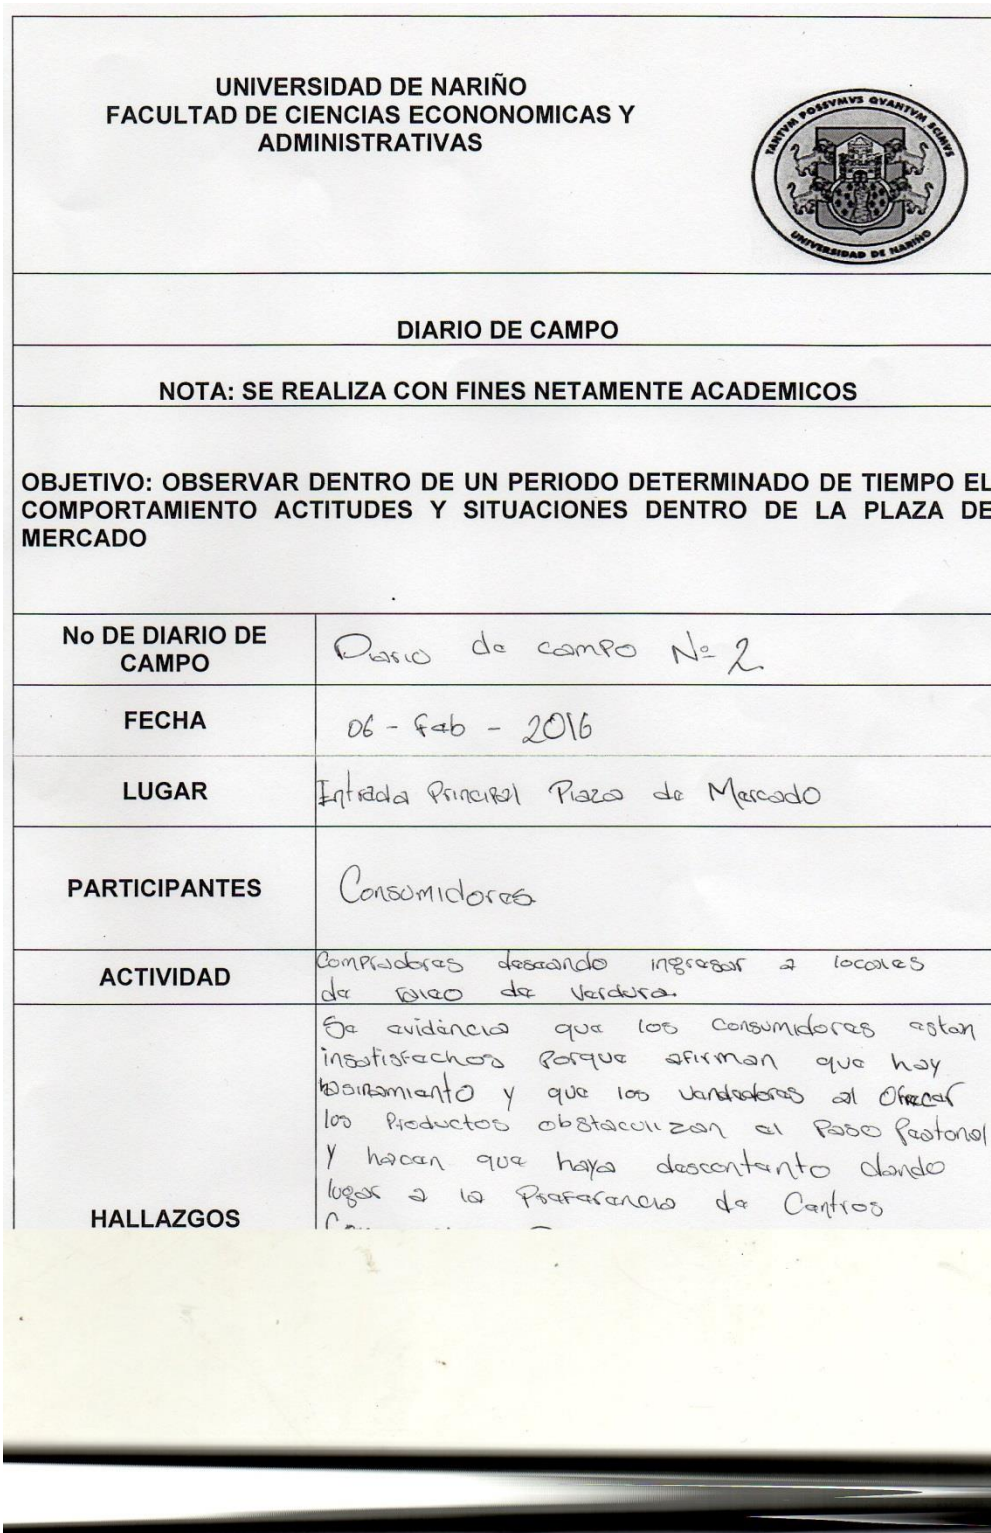 UNIVERSIDAD DE NARIÑO
FACULTAD DE CIENCIAS ECONONOMICAS Y
ADMINISTRATIVAS
TANTVM POSSVMVS QVANTVM SCIMVS
UNIVERSIDAD DE NARIÑO
DIARIO DE CAMPO
NOTA: SE REALIZA CON FINES NETAMENTE ACADEMICOS
OBJETIVO: OBSERVAR DENTRO DE UN PERIODO DETERMINADO DE TIEMPO EL
COMPORTAMIENTO ACTITUDES Y SITUACIONES DENTRO DE LA PLAZA DE
MERCADO
No DE DIARIO DE
CAMPO
Diario de campo Nº 2.
FECHA
06 - feb - 2016
LUGAR
Intrada Principal Plaza de Mercado
PARTICIPANTES
Consumidores
ACTIVIDAD
Compradores deseando ingresar a locales
de de Verdura.
Se evidencia que los consumidores estan
insatisfechos porque afirman que hay
y que los vendedores al Ofrecer
los Productos obstaculizan el Paso Peatonal
y hacen que haya descontento dando
lugar a la Preferencia de Centros
HALLAZGOS